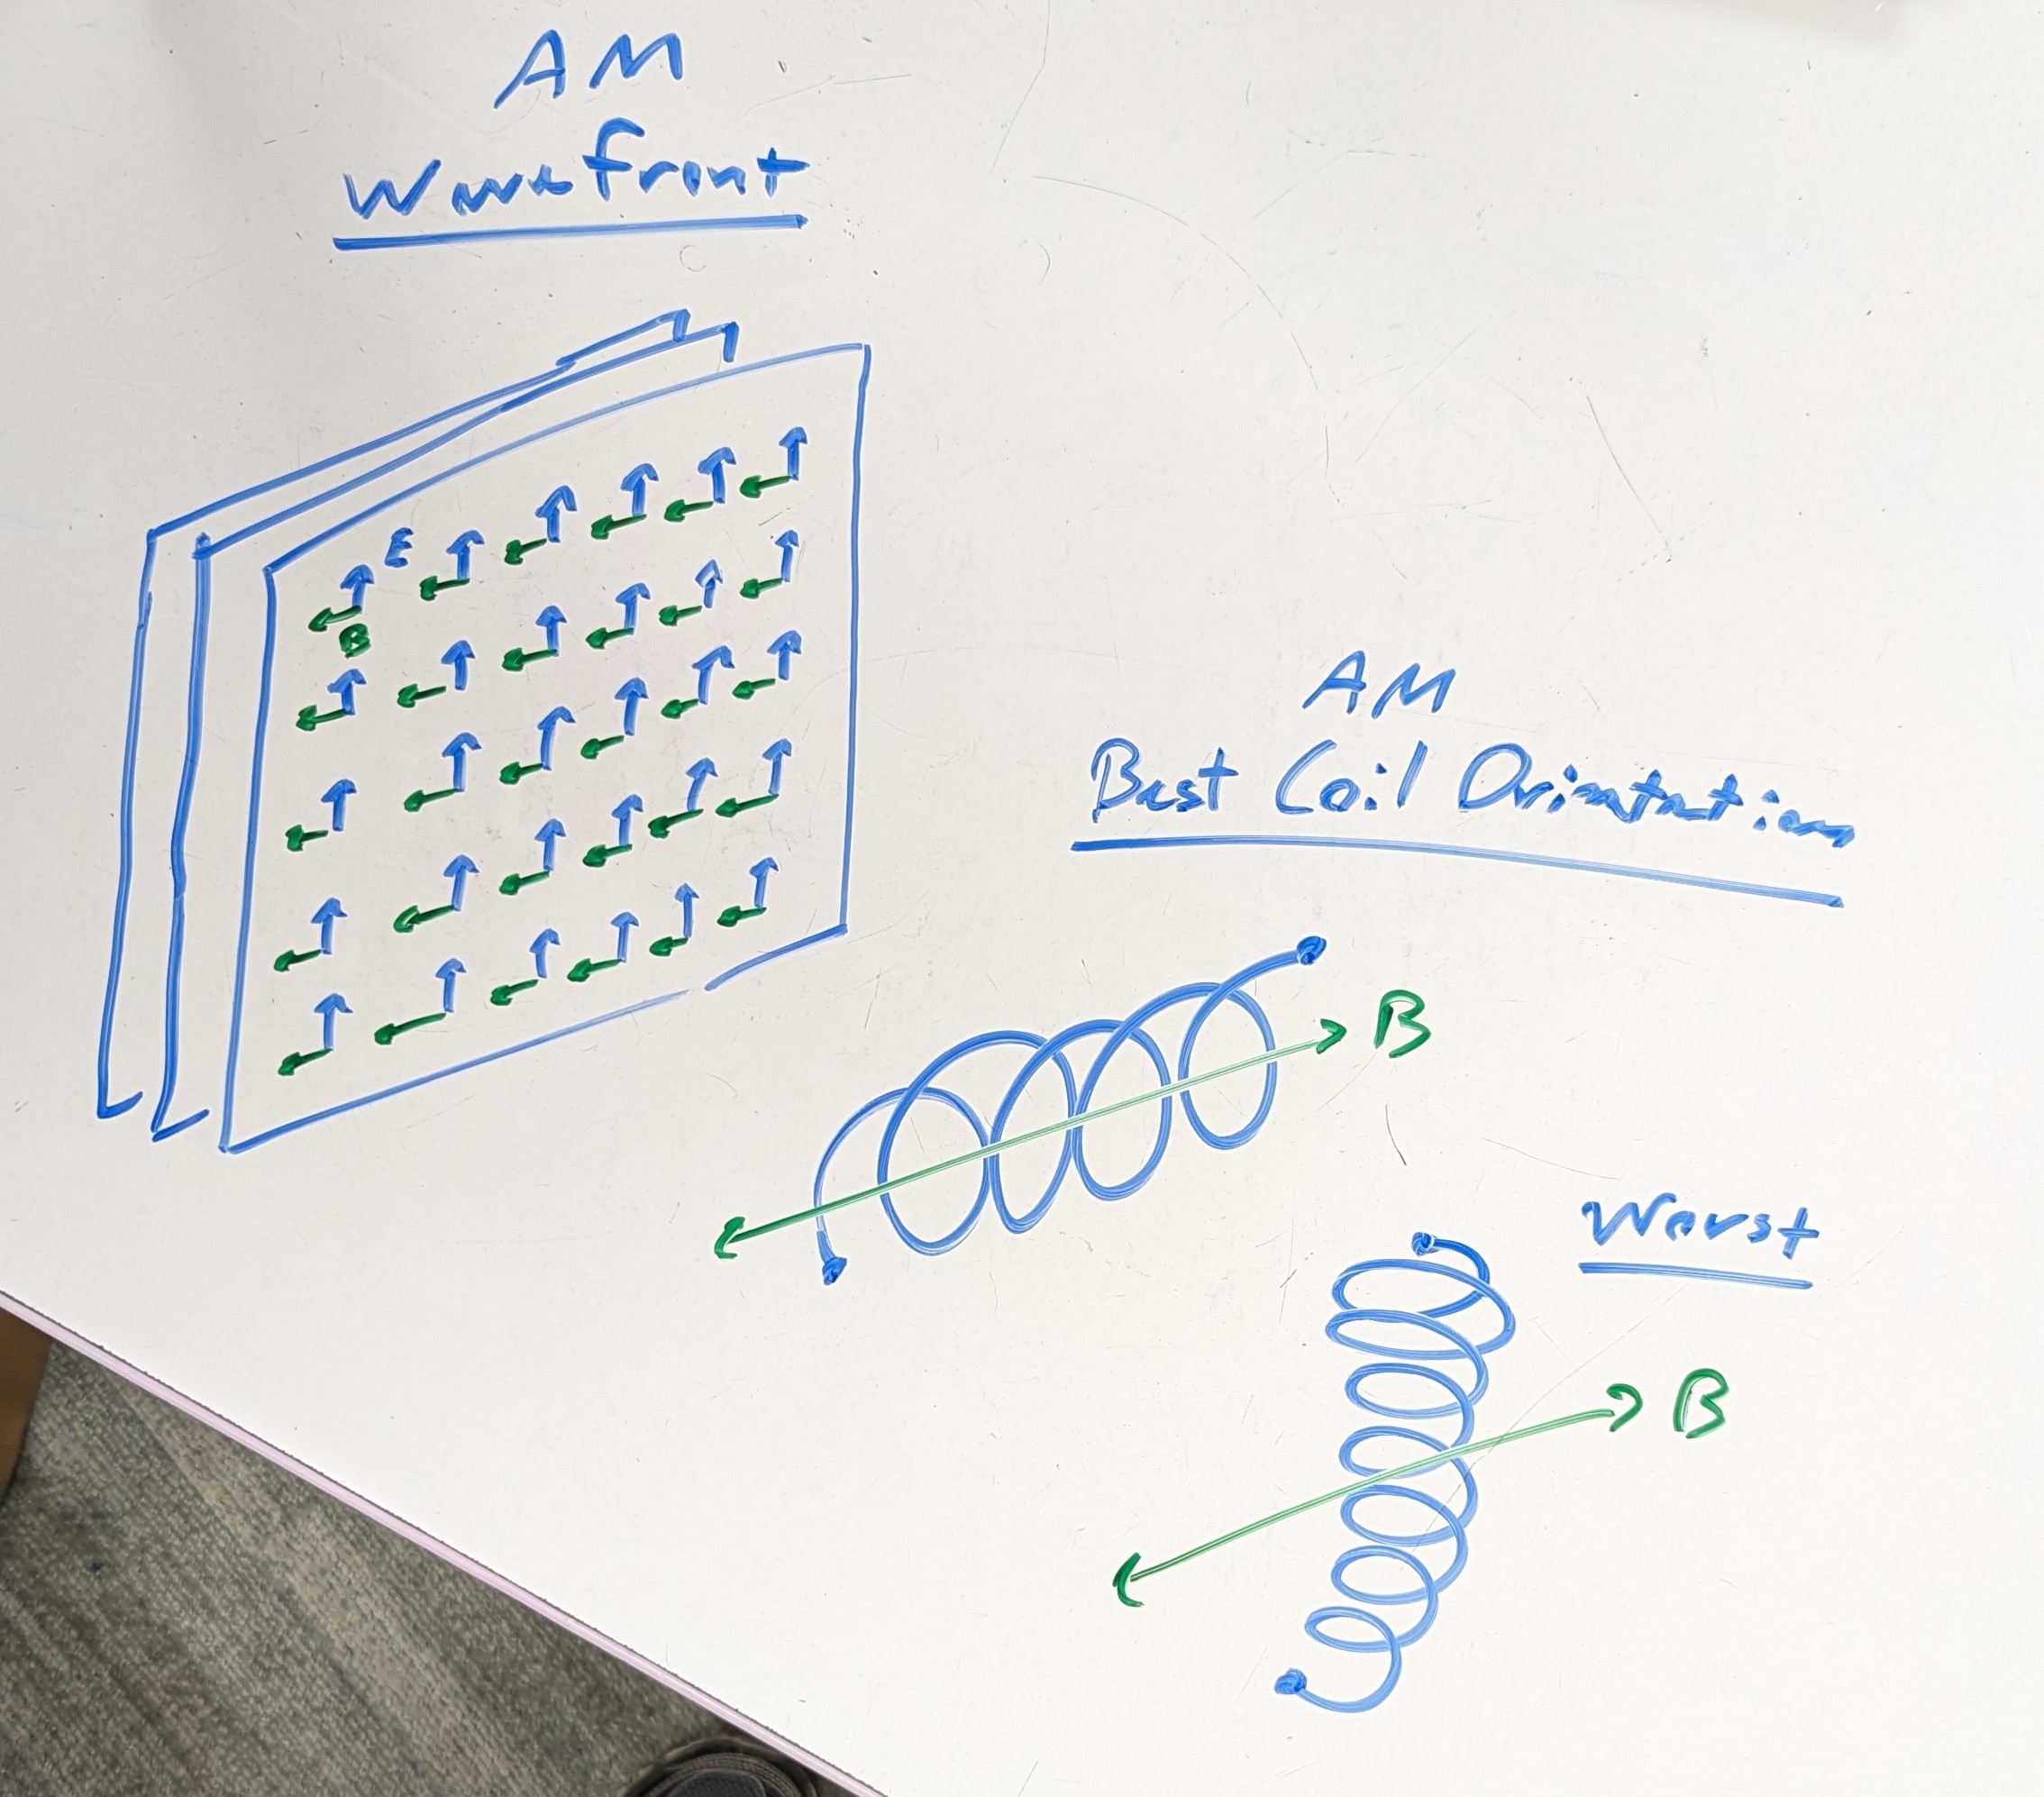 AM
Wavefront
E
B
AM
Best Coil Orientation
B
Worst
B